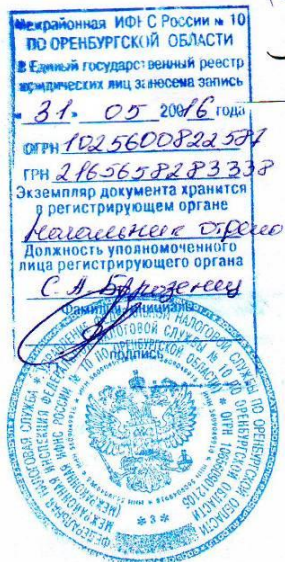 Межрайонная ИФНС России № 10
ПО ОРЕНБУРГСКОЙ ОБЛАСТИ
В Единый государственный реестр
юридических лиц занесена запись
« 31 » 05 2016 года
ОГРН 1025600822587
ГРН 2165658283338
Экземпляр документа хранится
в регистрирующем органе
Начальник отдела
Должность уполномоченного
лица регистрирующего органа
С. А.
Фамилия, инициалы
подпись
ФЕДЕРАЛЬНАЯ НАЛОГОВАЯ СЛУЖБА * УПРАВЛЕНИЕ ФЕДЕРАЛЬНОЙ НАЛОГОВОЙ СЛУЖБЫ ПО ОРЕНБУРГСКОЙ ОБЛАСТИ
МЕЖРАЙОННАЯ ИНСПЕКЦИЯ ФЕДЕРАЛЬНОЙ НАЛОГОВОЙ СЛУЖБЫ № 10 ПО ОРЕНБУРГСКОЙ ОБЛАСТИ
* 3 *